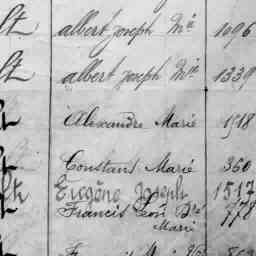 lt albert joseph Mie 1096
lt albert joseph Mie 1339
Alexandre Marie 1518
Constans Marie 360
Eugène Joseph 1517
Francis Léon 778
Marie